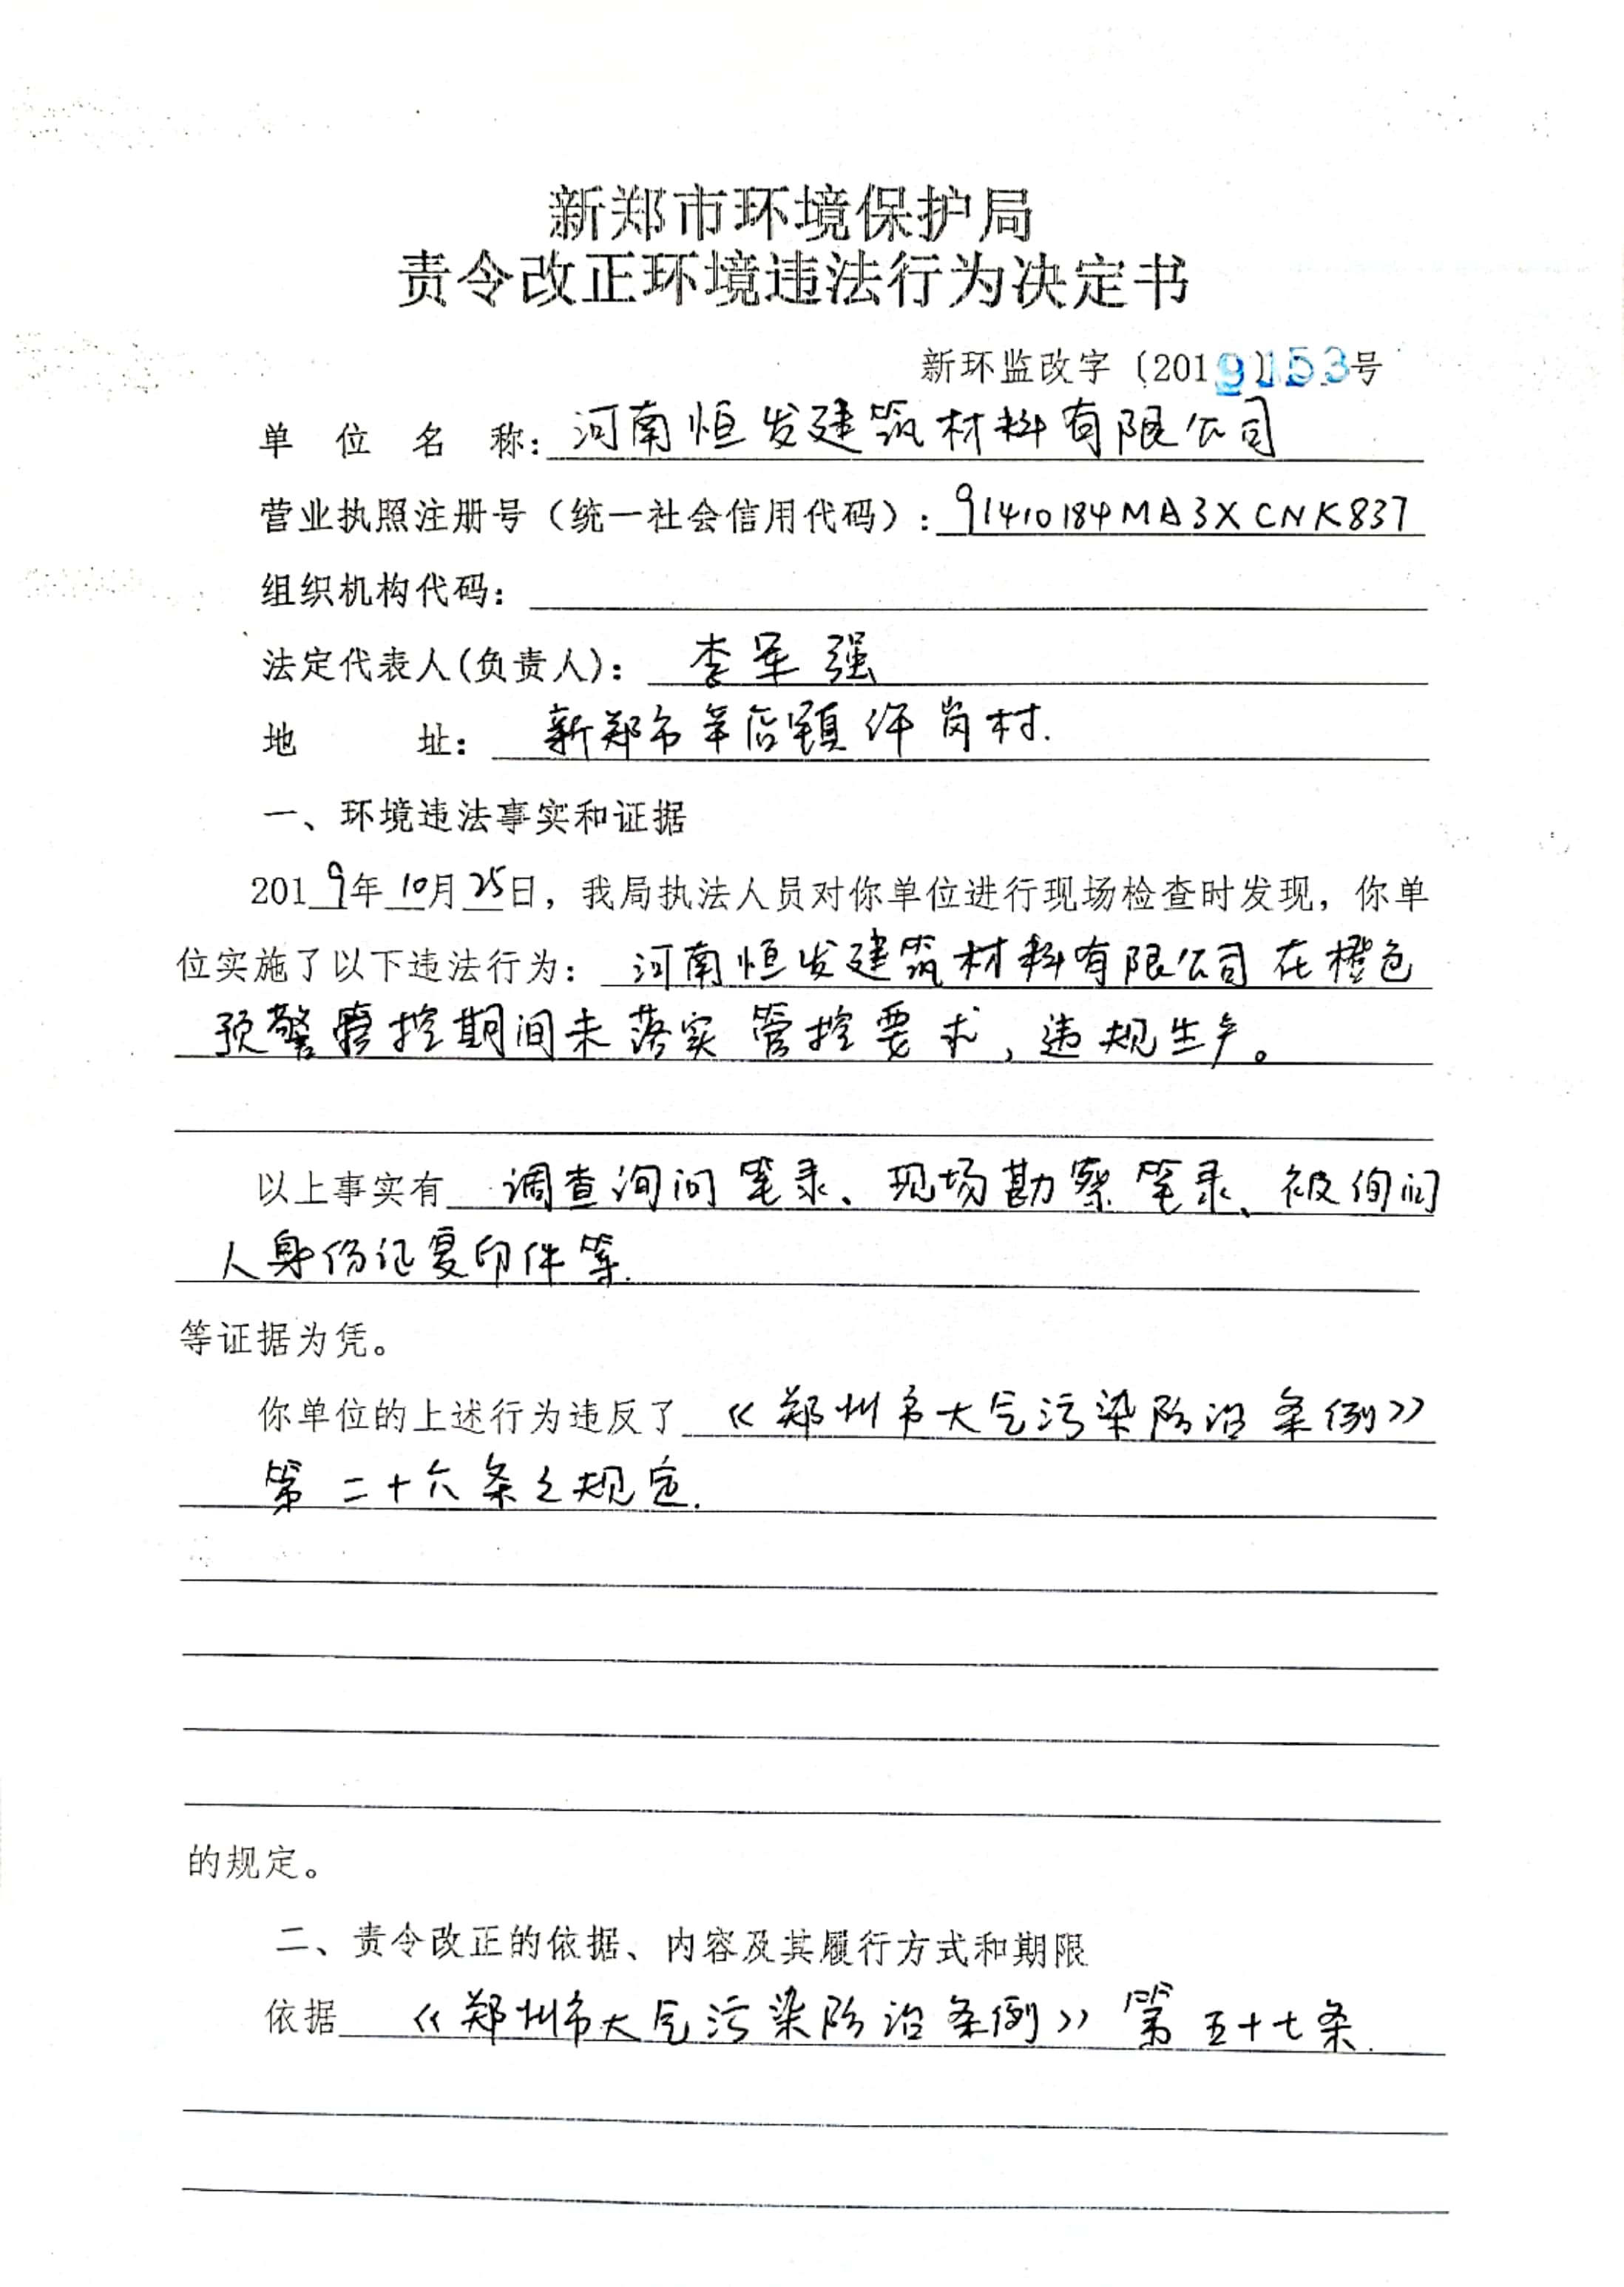 新郑市环境保护局
责令改正环境违法行为决定书
新环监改字〔2019〕153号
单位名称:河南恒发建筑材料有限公司
营业执照注册号（统一社会信用代码）:91410184MA3XCNK837
组织机构代码:
法定代表人(负责人):李军强
地址:新郑市辛店镇许岗村.
一、环境违法事实和证据
2019年10月25日，我局执法人员对你单位进行现场检查时发现，你单
位实施了以下违法行为:河南恒发建筑材料有限公司在橙色
预警管控期间未落实管控要求,违规生产。
以上事实有调查询问笔录、现场勘察笔录、被询问
人身份证复印件等.
等证据为凭。
你单位的上述行为违反了《郑州市大气污染防治条例》
第二十六条之规定.
的规定。
二、责令改正的依据、内容及其履行方式和期限
依据《郑州市大气污染防治条例》第五十七条.